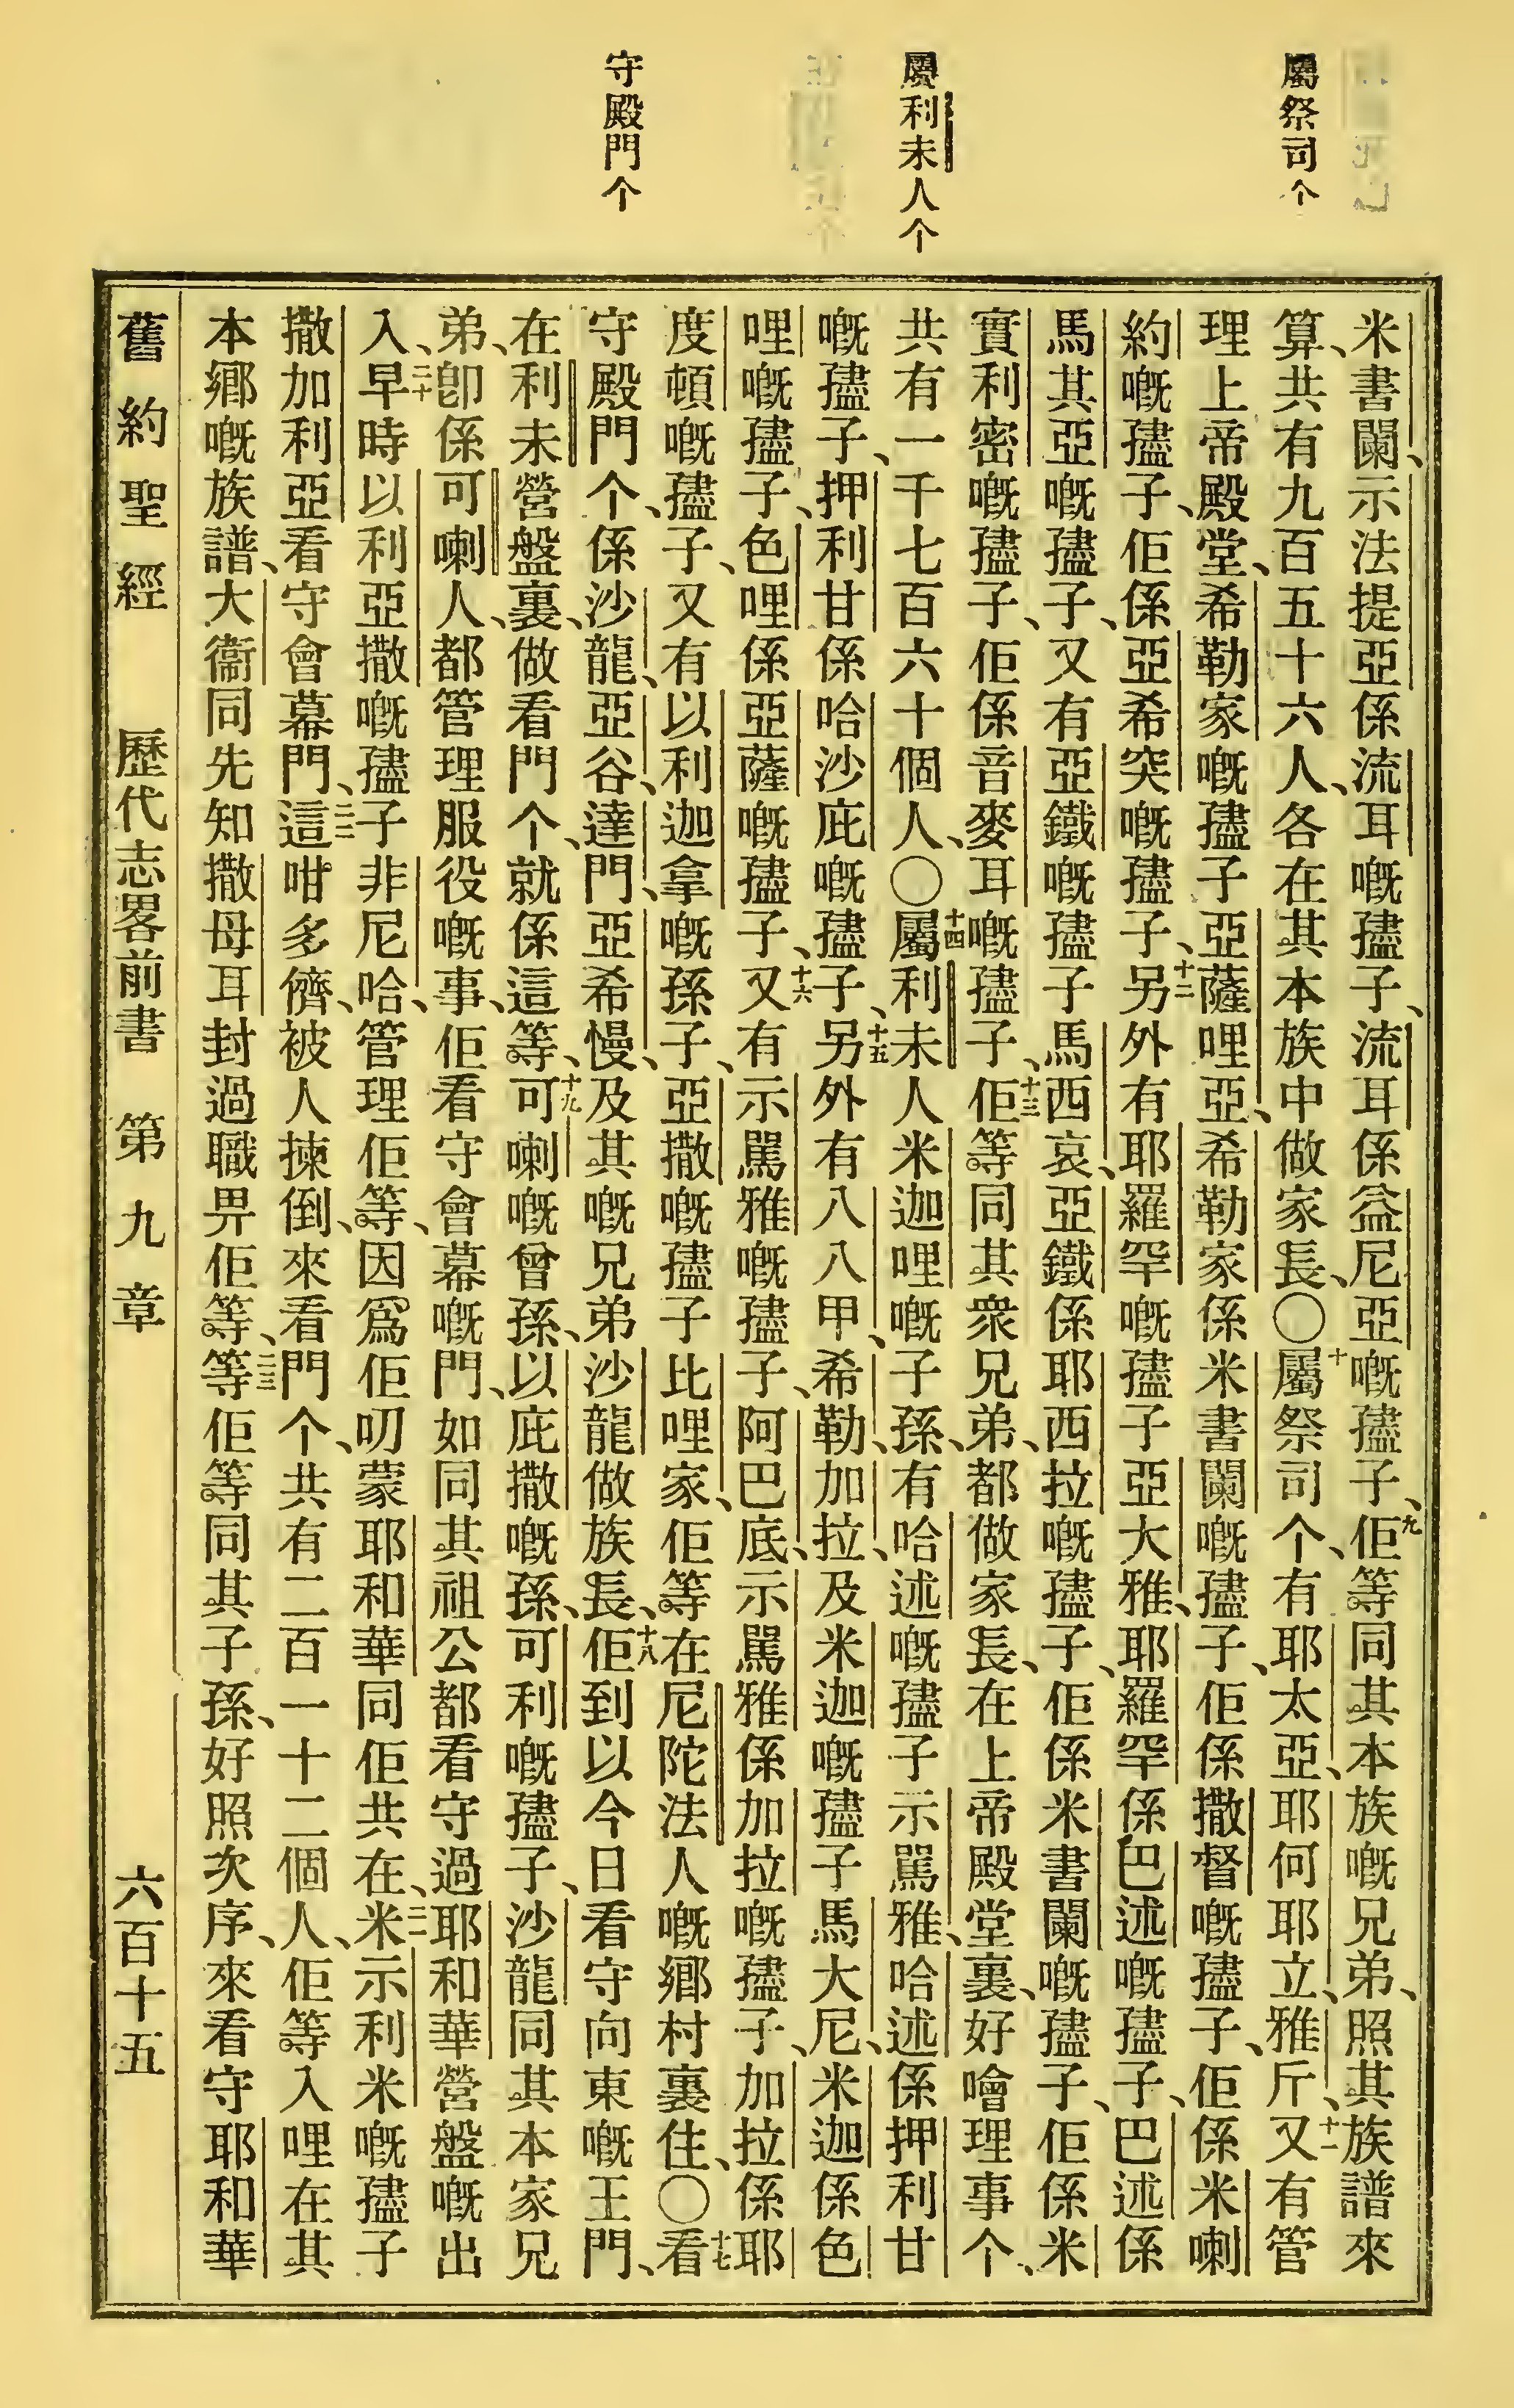 屬祭司个
屬利未人个
守殿門个
米書闌、示法提亞係流耳嘅㜽子、流耳係益尼亞嘅㜽子、九佢等同其本族嘅兄弟、照其族譜來
算、共有九百五十六人、各在其本族中做家長、〇十屬祭司个、有耶太亞、耶何耶立、雅斤、十一又有管
理上帝殿堂、希勒家嘅㜽子亞薩哩亞、希勒家係米書闌嘅㜽子、佢係撒督嘅㜽子、佢係米喇
約嘅㜽子、佢係亞希突嘅㜽子、十二另外有耶羅罕嘅㜽子亞大雅、耶羅罕係巴述嘅㜽子、巴述係
馬其亞嘅㜽子、又有亞鐵嘅㜽子馬西哀、亞鐵係耶西拉嘅㜽子、佢係米書闌嘅㜽子、佢係米
實利密嘅㜽子、佢係音麥耳嘅㜽子、十三佢等同其衆兄弟、都做家長、在上帝殿堂裏、好噲理事个、
共有一千七百六十個人、〇十四屬利未人米迦哩嘅子孫、有哈述嘅㜽子示駡雅、哈述係押利甘
嘅㜽子、押利甘係哈沙庇嘅㜽子、十五另外有八八甲、希勒、加拉、及米迦嘅㜽子馬大尼、米迦係色
哩嘅㜽子、色哩係亞薩嘅㜽子、十六又有示駡雅嘅㜽子、阿巴底、示駡雅係加拉嘅㜽子、加拉係耶
度頓嘅㜽子、又有以利迦拿嘅孫子、亞撒嘅㜽子比哩家、佢等在尼陀法人嘅鄉村裏住、〇十七看
守殿門个、係沙龍、亞谷、達門、亞希慢、及其嘅兄弟沙龍做族長、十八佢到以今日看守向東嘅王門、
在利未營盤裏、做看門个、就係這等、十九可喇嘅曾孫、以庇撒嘅孫、可利嘅㜽子、沙龍同其本家兄
弟、卽係可喇人、都管理服役嘅事、佢看守會幕嘅門、如同其祖公都看守過耶和華營盤嘅出
入、二十早時以利亞撒嘅㜽子非尼哈、管理佢等、因爲佢叨蒙耶和華同佢共在、二一米示利米嘅㜽子
撒加利亞看守會幕門、二二這咁多儕、被人揀倒、來看門个、共有二百一十二個人、佢等入哩在其
本鄉嘅族譜、大衞同先知撒母耳封過職畀佢等、二三等佢等同其子孫、好照次序、來看守耶和華
舊約聖經　歷代志畧前書　第九章　六百十五